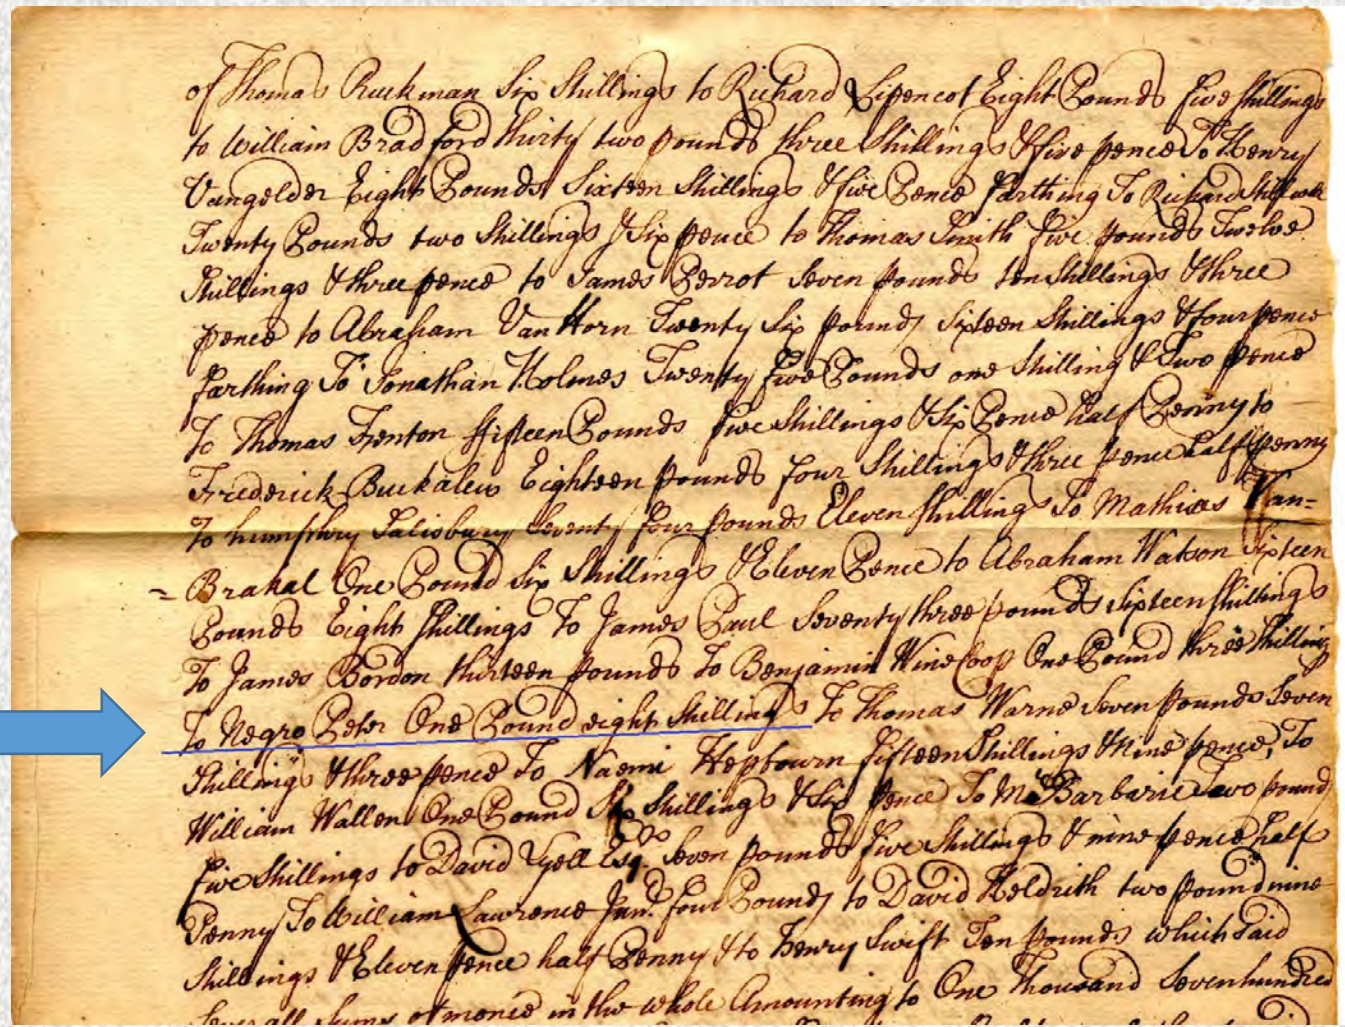 of Thomas Ruckman Six Shillings to Richard Lipencot Eight Pounds five shillings
to William Bradford thirty two pounds three Shillings & five pence To Henry
Vangelder Eight Pounds Sixteen Shillings & five Pence farthing To Richard Stillwell
Twenty Pounds two Shillings & Six pence to Thomas Smith five pounds Twelve
Shillings & three pence to James Perrot Seven pounds ten Shillings & three
pence to Abraham Van Horn Twenty Six pounds Sixteen Shillings & four pence
farthing To Jonathan Holmes Twenty five Pounds one Shilling & Two pence
To Thomas Frenton fifteen Pounds five Shillings & Six Pence half Penny to
Frederick Buckalew Eighteen pounds four Shillings & three pence half penny
To humphry Salisbury Seventy four pounds Eleven shillings To Mathias Van=
=Brakal One Pound Six Shillings & Eleven Pence to Abraham Watson Sixteen
Pounds Eight shillings To James Paul Seventy three pounds sixteen shillings
To James Bordon thirteen pounds To Benjamin WineCoop One Pound three Shilling
To Negro Peter One Pound eight Shillings To Thomas Warne Seven pounds Seven
Shillings & three pence To Naemi Hepbourn fifteen Shillings & Nine pence, To
William Wallen One Pound Six Shillings & Six pence To Mr Barbarie Two pound
five Shillings to David Lyell Esqr. Seven pounds five Shillings & nine pence half
Penny To William Lawrence Junr. four Pounds to David Heldrith two pound nine
Shillings & Eleven pence half Penny & to Henry Swift Ten pounds which Said
Severall Sums of monie in the whole Amounting to One Thousand Sevenhundred